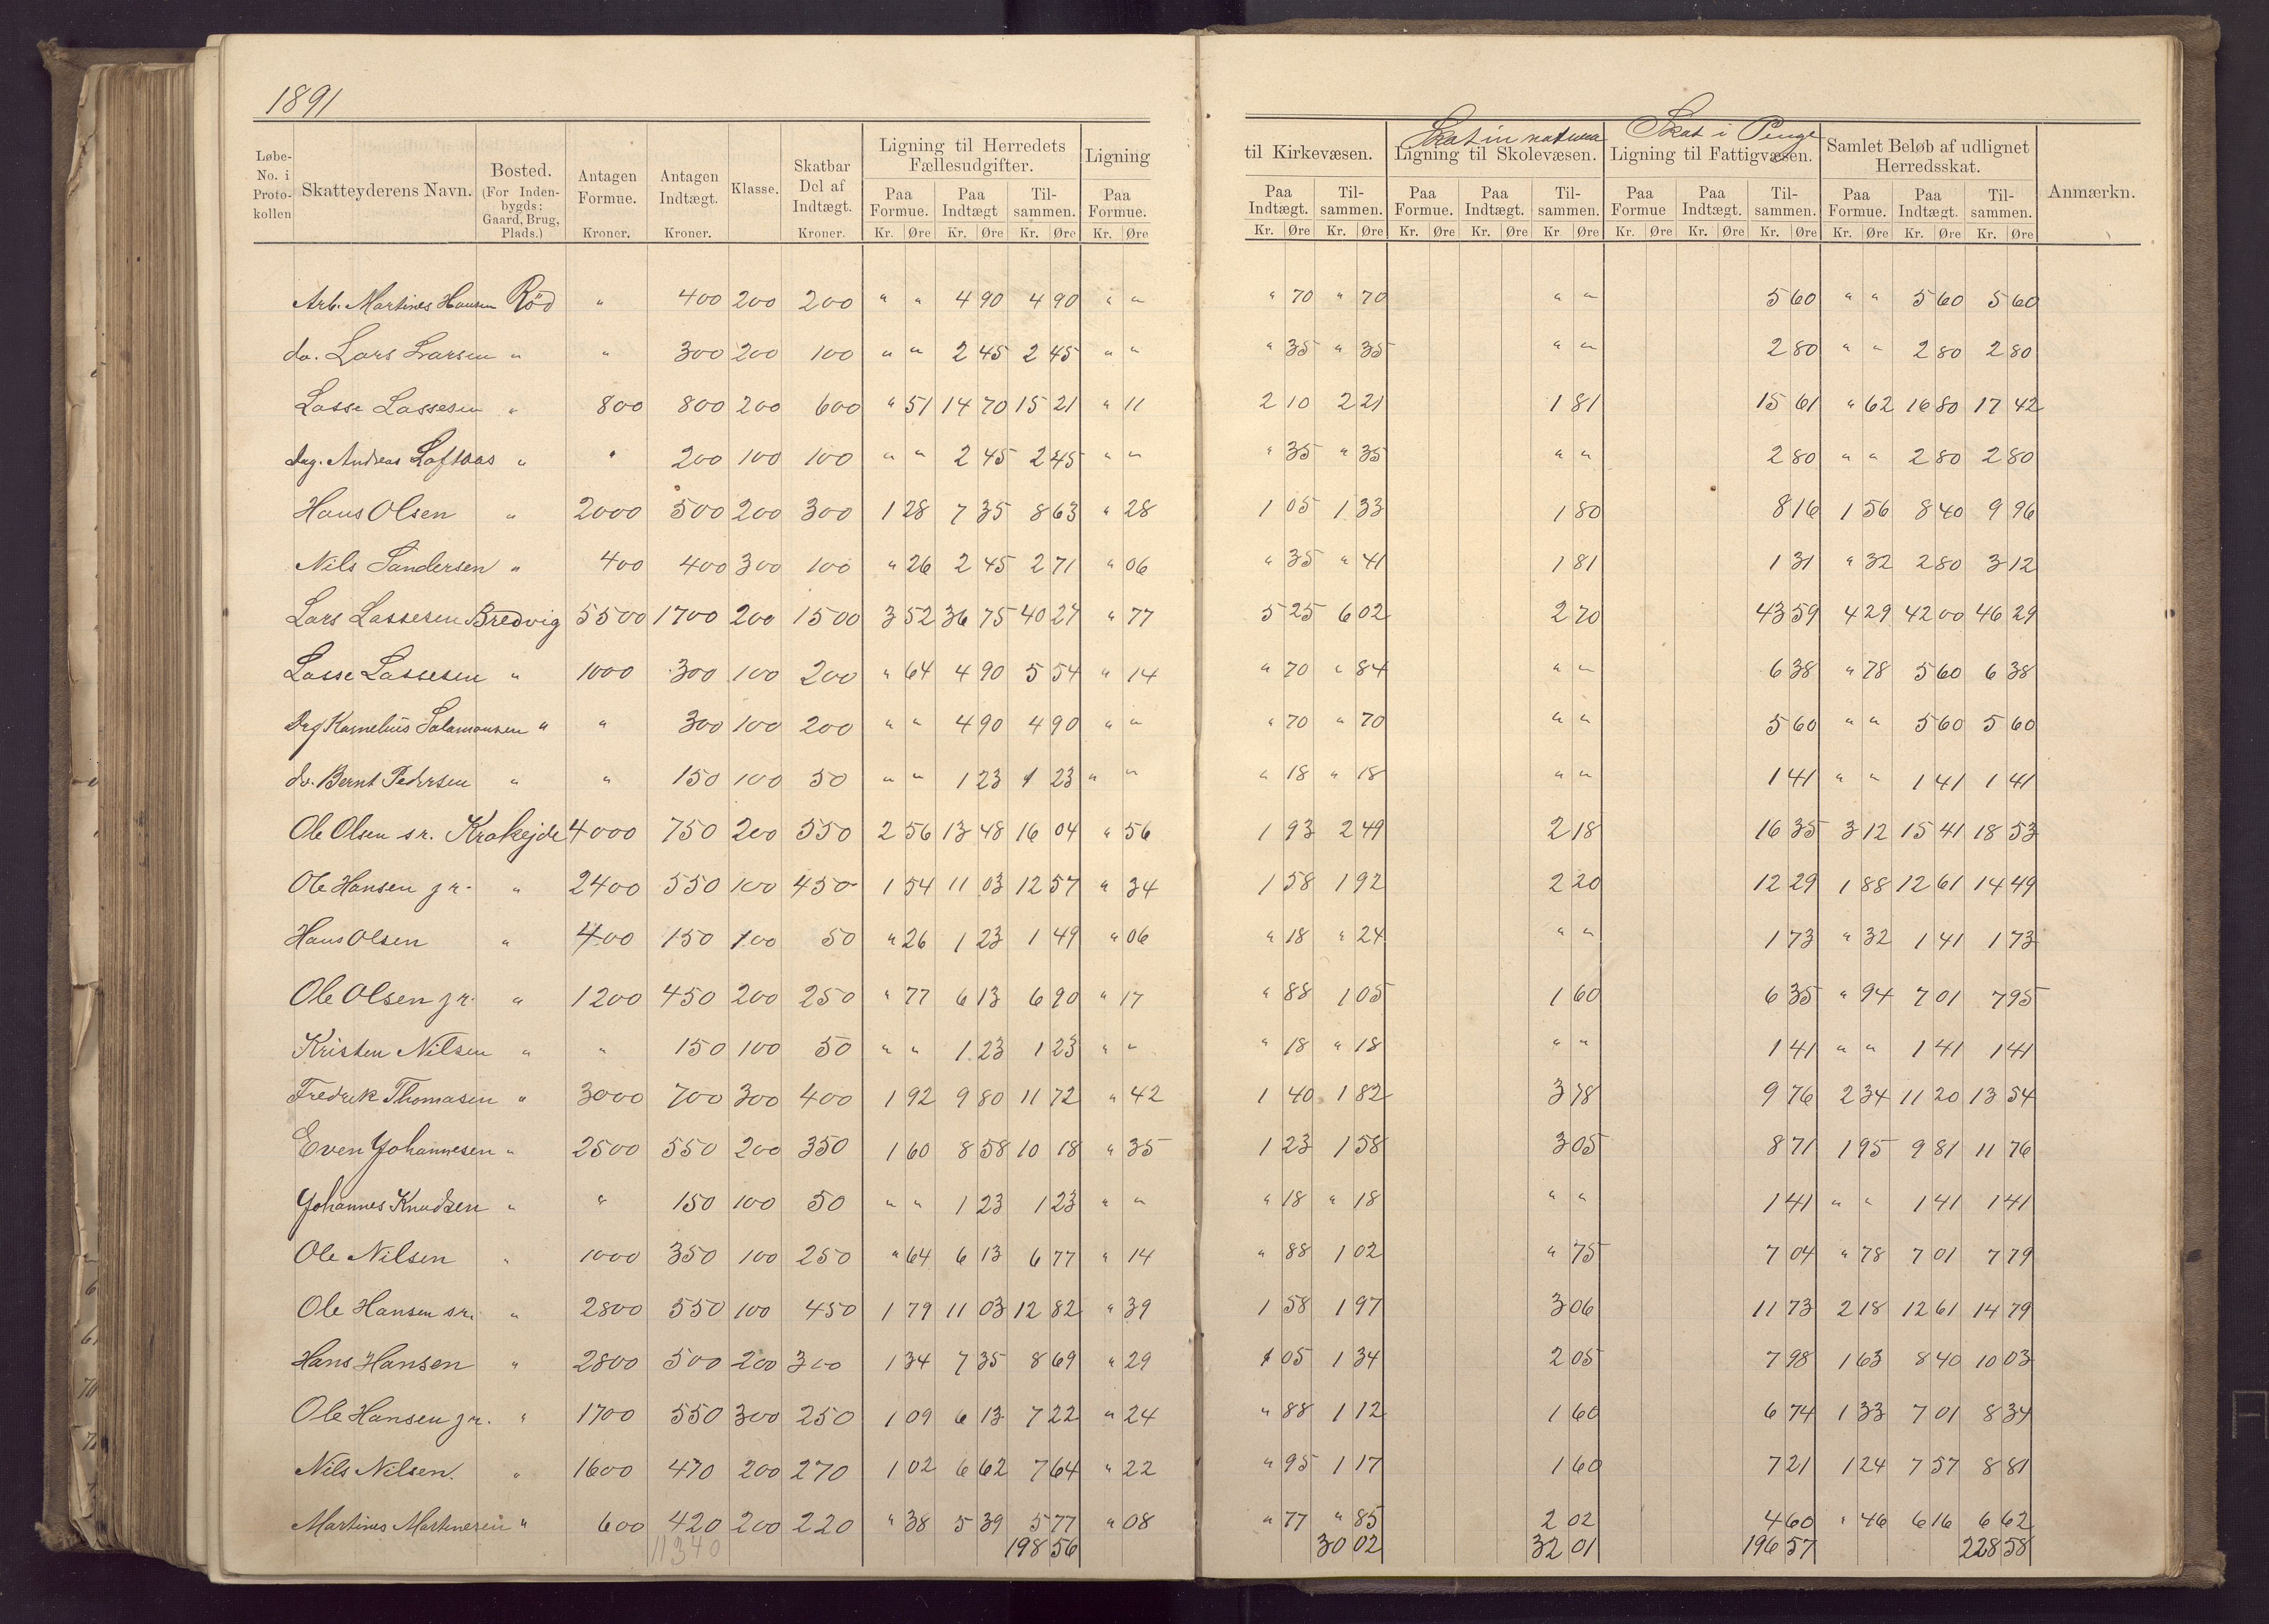 1891
Løbe-No. i Proto-kollen | Skatteyderens Navn. | Bosted. (For Inden-bygds: Gaard, Brug, Plads.) | Antagen Formue. Kroner. | Antagen Indtægt. Kroner. | Klasse. | Skatbar Del af Indtægt. Kroner. | Ligning til Herredets Fællesudgifter. Paa Formue. Kr. Øre | Paa Indtægt Kr. Øre | Til-sammen. Kr. Øre | Ligning Paa Formue. Kr. Øre | til Kirkevæsen. Paa Indtægt. Kr. Øre | Til-sammen. Kr. Øre | Skat in natura Ligning til Skolevæsen. Paa Formue. Kr. Øre | Paa Indtægt. Kr. Øre | Til-sammen. Kr Øre | Skat i Penge Ligning til Fattigvæsen. Paa Formue Kr. Øre | Paa Indtægt. Kr. Øre | Til-sammen. Kr. Øre | Samlet Beløb af udlignet Herredsskat. Paa Formue. Kr. Øre | Paa Indtægt. Kr. Øre | Til-sammen. Kr. Øre | Anmærkn.
Arb. Martines Hansen Röd " 400 200 200 " " 4 90 4 90 " " " 70 " 70 " " 5 60 " " 5 60 5 60
do. Lars Larsen " " 300 200 100 " " 2 45 2 45 " " " 35 " 35 " " 2 80 " " 2 80 2 80
Lasse Lassesen " 800 800 200 600 " 51 14 70 15 21 " 11 2 10 2 21 1 81 15 61 " 62 16 80 17 42
Dag. Andreas Loftaas " " 200 100 100 " " 2 45 2 45 " " " 35 " 35 " " 2 80 " " 2 80 2 80
Hans Olsen " 2000 500 200 300 1 28 7 35 8 63 " 28 1 05 1 33 1 80 8 16 1 56 8 40 9 96
Nils Sandersen " 400 400 300 100 " 26 2 45 2 71 " 06 " 35 " 41 1 81 1 31 " 32 2 80 3 12
Lars Lassesen Bredvig 5500 1700 200 1500 3 52 36 75 40 27 " 77 5 25 6 02 2 70 43 59 4 29 42 00 46 29
Lasse Lassesen " 1000 300 100 200 " 64 4 90 5 54 " 14 " 70 " 84 " " 6 38 " 78 5 60 6 38
Dag Kornelius Salamonsen " " 300 100 200 " " 4 90 4 90 " " " 70 " 70 " " 5 60 " " 5 60 5 60
do. Bernt Pedersen " " 150 100 50 " " 1 23 1 23 " " " 18 " 18 " " 1 41 " " 1 41 1 41
Ole Olsen sr. Krakejde 4000 750 200 550 2 56 13 48 16 04 " 56 1 93 2 49 2 18 16 35 3 12 15 41 18 53
Ole Hansen jr. " 2400 550 100 450 1 54 11 03 12 57 " 34 1 58 1 92 2 20 12 29 1 88 12 61 14 49
Hans Olsen " 400 150 100 50 " 26 1 23 1 49 " 06 " 18 " 24 " " 1 73 " 32 1 41 1 73
Ole Olsen jr. " 1200 450 200 250 " 77 6 13 6 90 " 17 " 88 1 05 1 60 6 35 " 94 7 01 7 95
Kristen Nilsen " " 150 100 50 " " 1 23 1 23 " " " 18 " 18 " " 1 41 " " 1 41 1 41
Fredrik Thomasen " 3000 700 300 400 1 92 9 80 11 72 " 42 1 40 1 82 3 78 9 76 2 34 11 20 13 54
Even Johannesen " 2500 550 200 350 1 60 8 58 10 18 " 35 1 23 1 58 3 05 8 71 1 95 9 81 11 76
Johannes Knudsen " " 150 100 50 " " 1 23 1 23 " " " 18 " 18 " " 1 41 " " 1 41 1 41
Ole Nilsen " 1000 350 100 250 " 64 6 13 6 77 " 14 " 88 1 02 " 75 7 04 " 78 7 01 7 79
Ole Hansen sr. " 2800 550 100 450 1 79 11 03 12 82 " 39 1 58 1 97 3 06 11 73 2 18 12 61 14 79
Hans Hansen " 2800 500 200 300 1 34 7 35 8 69 " 29 1 05 1 34 2 05 7 98 1 63 8 40 10 03
Ole Hansen jr. " 1700 550 300 250 1 09 6 13 7 22 " 24 " 88 1 12 1 60 6 74 1 33 7 01 8 34
Nils Nilsen. " 1600 470 200 270 1 02 6 62 7 64 " 22 " 95 1 17 1 60 7 21 1 24 7 57 8 81
Martines Martinesen " 600 420 200 220 " 38 5 39 5 77 " 08 " 77 " 85 2 02 4 60 " 46 6 16 6 62
11340 198 56 30 02 32 01 196 57 228 58